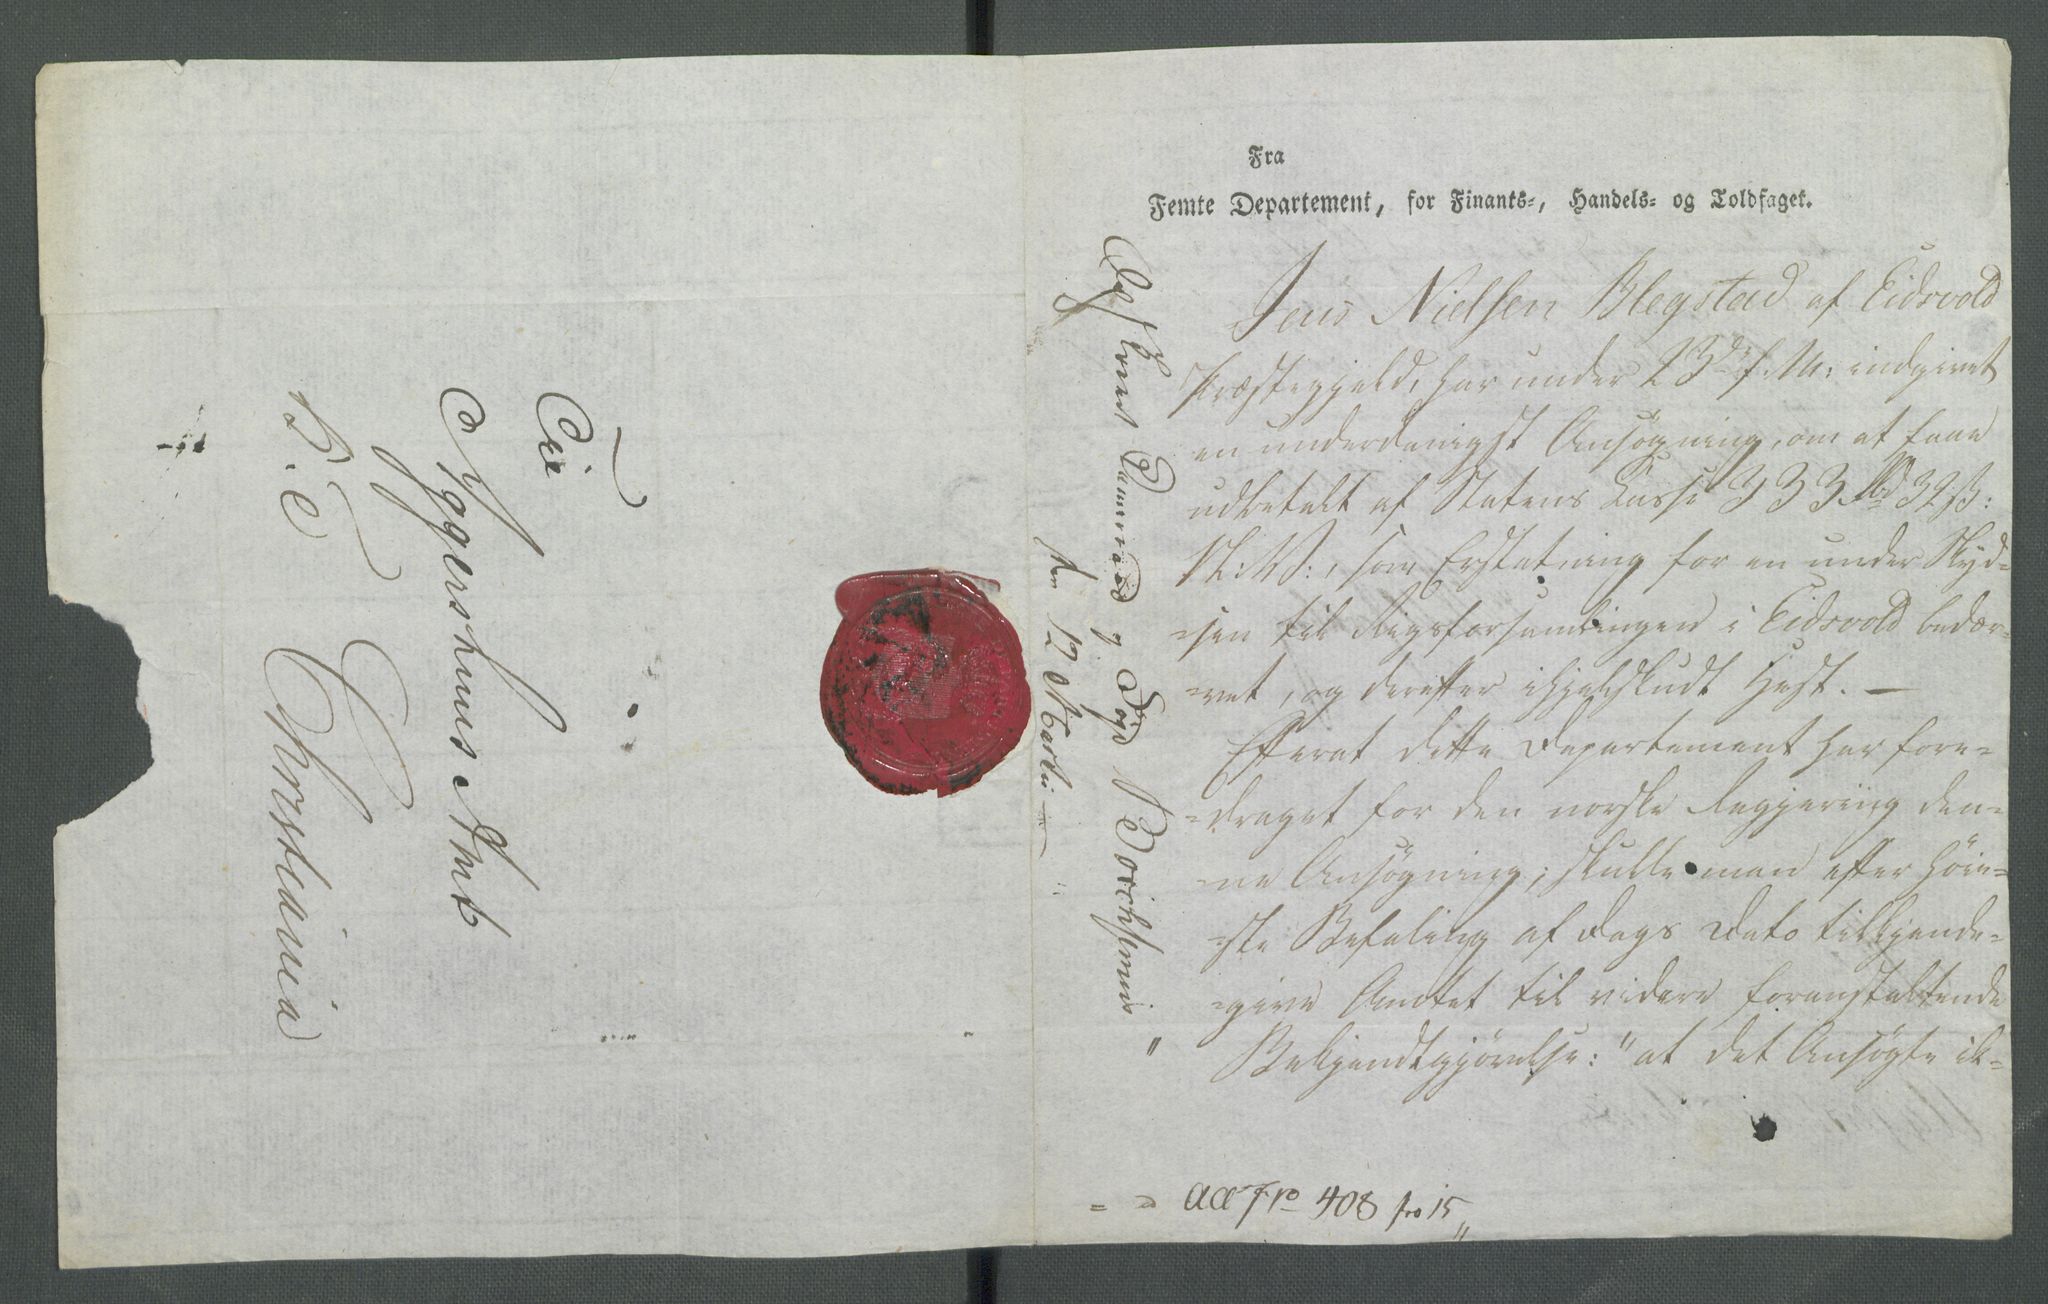 Fra
Femte Departement, for Finants-, Handels- og Toldfaget.
Jens Nielsen Blegstad af Eidsvold
Præstegjeld, har under 23de f: M: indgivet
en underdanigst Ansøgning, om at faae
udbetalt af Statens Casse 333 Rbd 32 ß:
N:V:, som Erstatning for en under Skyd-
-sen til Rigsforsamlingen i Eidsvold bedær-
-vet, og derefter ihjelskudt Hest. —
Efterat dette Departement har fore-
-draget for den norske Regjering den-
-ne Ansøgning; skulle man efter Høie-
-ste Befaling af Dags Dato tilkjende-
-give Amtet til videre foranstaltende
Bekjendtgjørelse: "at det Ansøgte ik-
den 12 Martii
408 pro 15
Til
Aggershuus Amt
B. T. Christiania